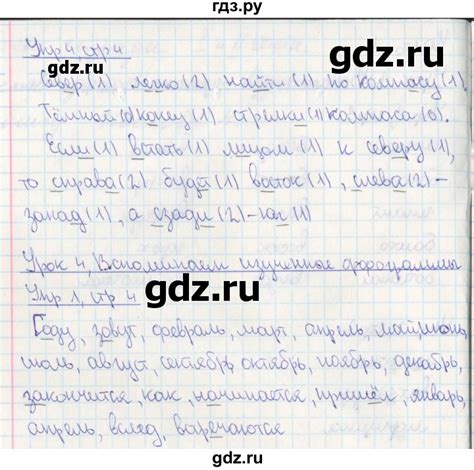 гдз.ру
Упр 4 стр 4
Север (1) легко (2) найти (1) по компасу (1).
Тёмной (0) конец (1) стрелки (1) компаса (0).
Если (1) встать (1) лицом (1) к северу (1),
то справа (2) будет (1) восток (1), слева (2) -
запад (1), а сзади (2) - юг (1)
Урок 4, Вспоминаем изученные орфограммы
Упр 1, стр 4
Году, зовут, февраль, март, апрель, май, июнь,
июль, август, сентябрь, октябрь, ноябрь, декабрь,
закончится, как, начинается, пришёл, январь,
апрель, вслед, встречаются
gdz.ru
gdz.ru
gdz.ru
gdz.ru
gdz.ru
gdz.ru